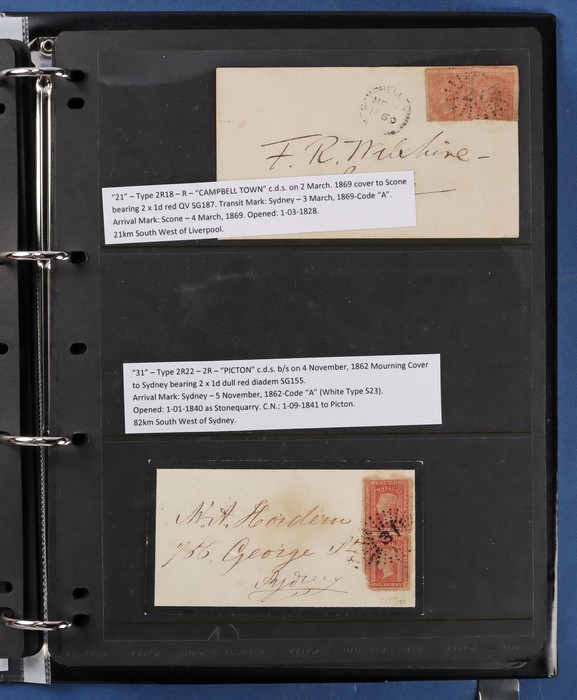 CAMPBELL TOWN
MR
69
21
F. R. Wilshire
"21" – Type 2R18 – R – "CAMPBELL TOWN" c.d.s. on 2 March. 1869 cover to Scone
bearing 2 x 1d red QV SG187. Transit Mark: Sydney – 3 March, 1869-Code "A".
Arrival Mark: Scone – 4 March, 1869. Opened: 1-03-1828.
21km South West of Liverpool.
"31" – Type 2R22 – 2R – "PICTON" c.d.s. b/s on 4 November, 1862 Mourning Cover
to Sydney bearing 2 x 1d dull red diadem SG155.
Arrival Mark: Sydney – 5 November, 1862-Code "A" (White Type S23).
Opened: 1-01-1840 as Stonequarry. C.N.: 1-09-1841 to Picton.
82km South West of Sydney.
POSTAGE
31
ONE PENNY
W. A. Hordern
756. George St
Sydney